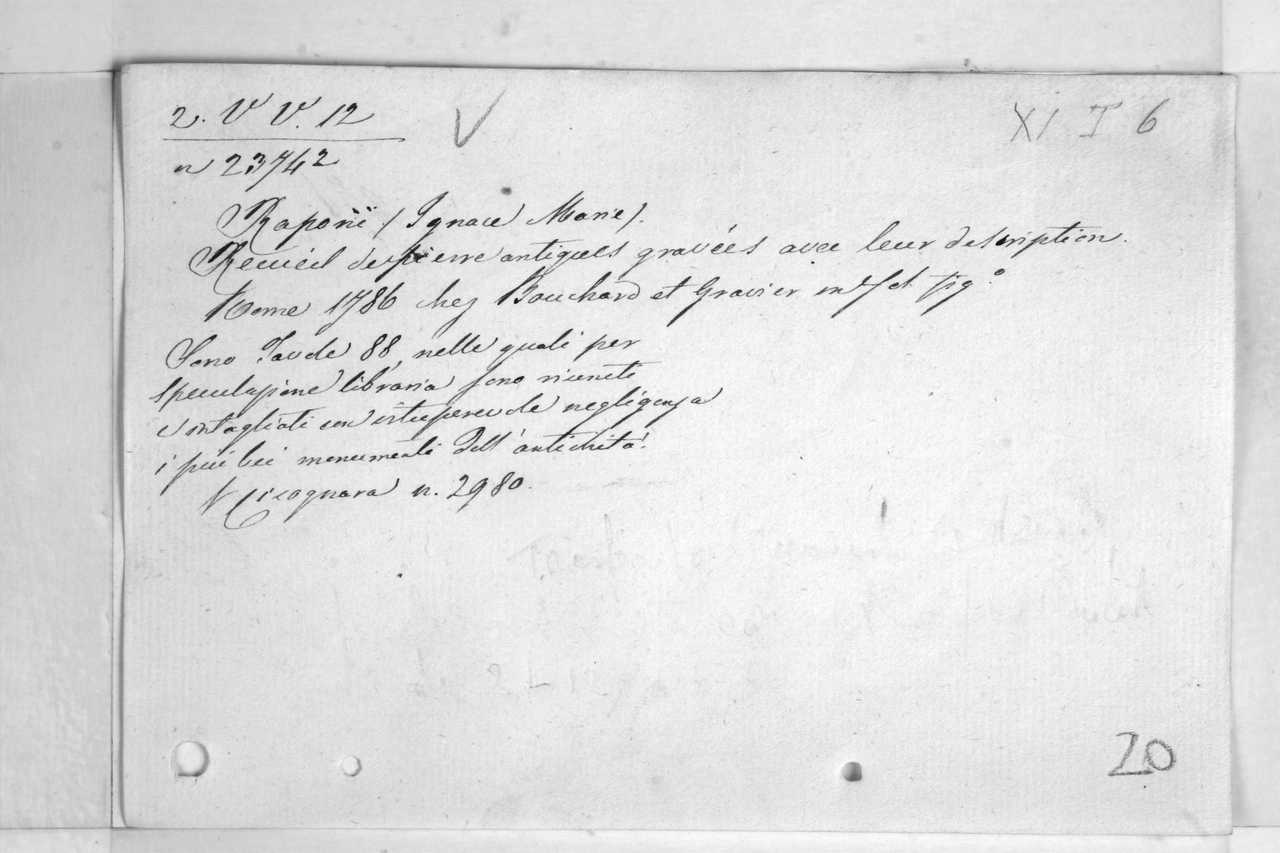 2. V V. 12
V
XI I 6
n 23742
Raponi (Ignace Marie).
Recueil de pierre antiques gravées avec leur description.
Rome 1786 chez Bouchard et Gravier in f et fig.
Sono Tavole 88, nelle quali per
speculazione libraria sono riunite
contagliati con vituperevole negligenza
i più bei monumenti dell'antichità.
V Cicognara n. 2980.
20